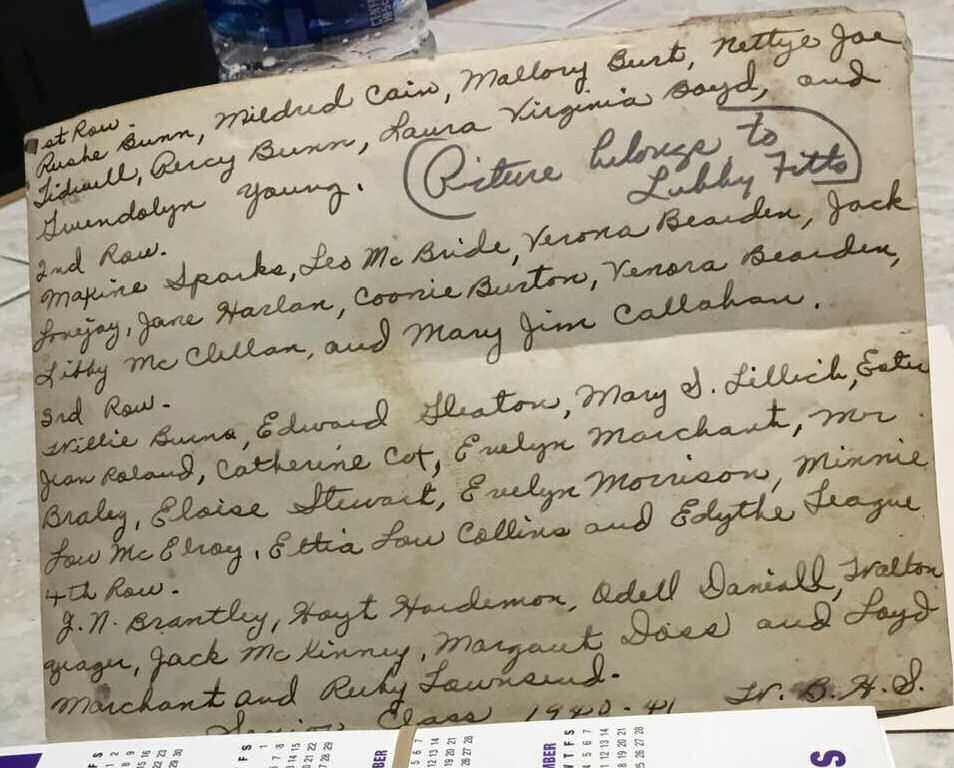 1st Row.
Rushe Bunn, Mildred Cain, Mallory Burt, Nettye Joe
Tidwell, Percy Bunn, Laura Virginia Boyd, and
Gwendolyn Young.
(Picture belongs to
Lubby Fitts)
2nd Row.
Maxine Sparks, Leo McBride, Verona Bearden, Jack
Lovejoy, Jane Harlan, Coonie Burton, Venora Bearden,
Libby McClellan, and Mary Jim Callahan.
3rd Row.
Willie Burns, Edward Sleaton, Mary S. Lillich, Ester
Jean Roland, Catherine Cox, Evelyn Marchant, Mr
Braley, Eloise Stewart, Evelyn Morrison, Minnie
Lou McElroy, Ettia Lou Collins and Edythe League
4th Row.
J. N. Brantley, Hoyt Hardemon, Odell Daniell, Walton
Yeager, Jack McKinney, Margaut Doss and Loyd
Marchant and Ruby Townsend.
Senior Class 1940-41 W. B. H. S.